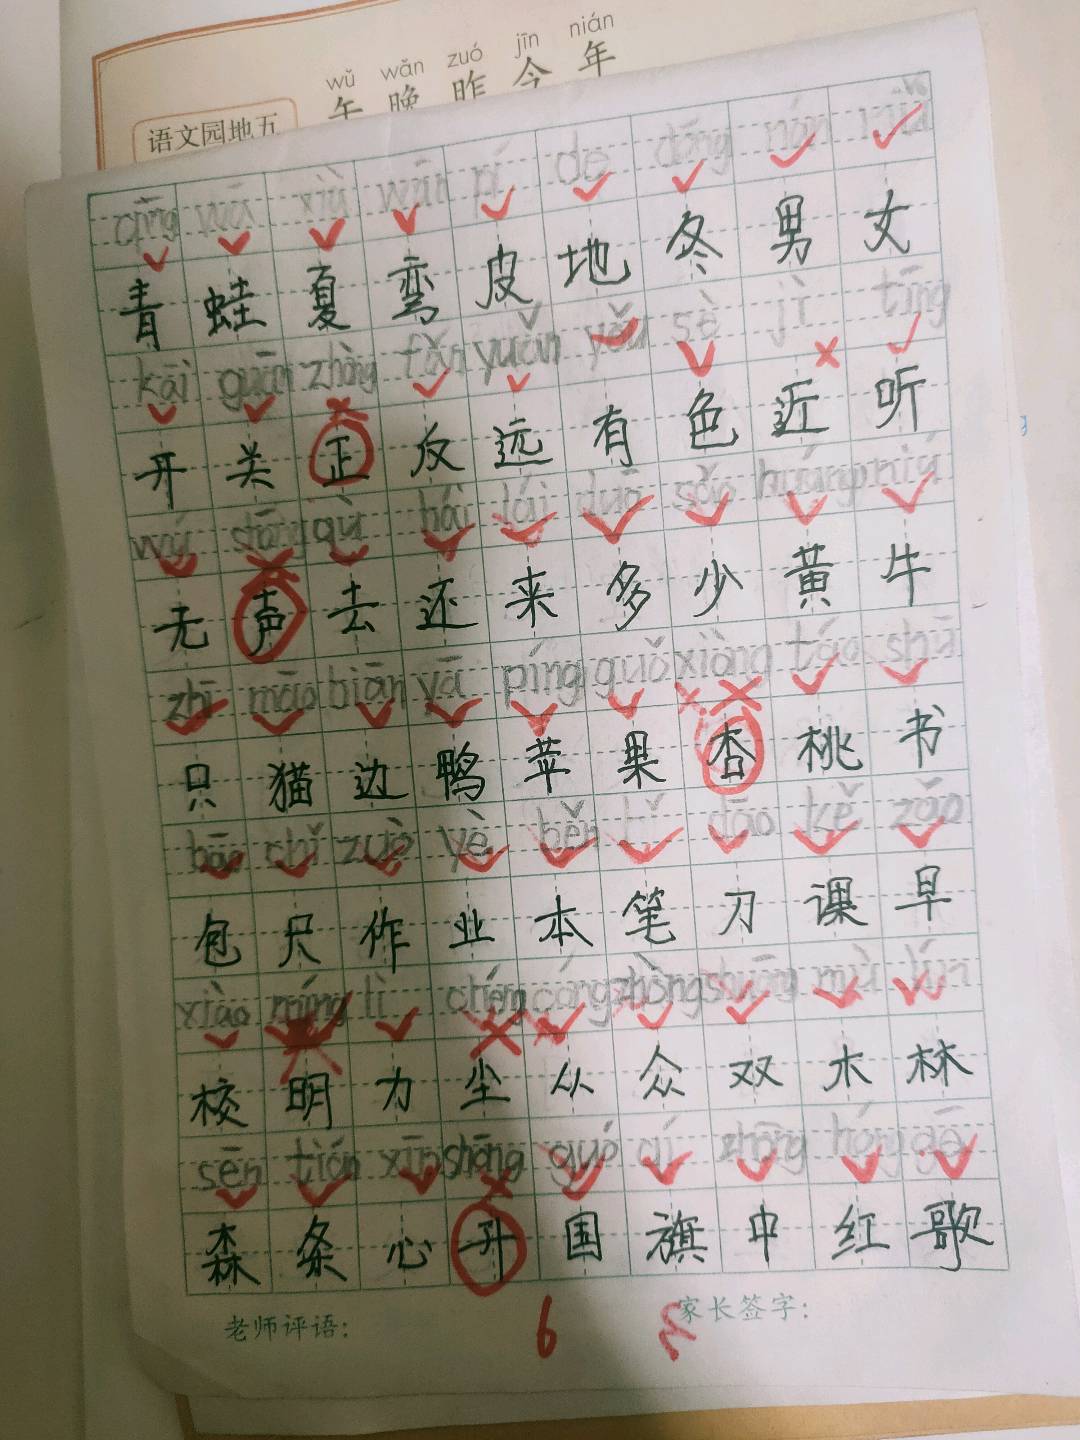 wǔ wǎn zuó jīn nián
午 晚 昨 今 年
语文园地五
qīng wā xià wān pí de dōng nán nǚ
青 蛙 夏 弯 皮 地 冬 男 女
kāi guān zhàng fǎn yuǎn yǒu sè jì tīng
开 关 正 反 远 有 色 近 听
wú shāng qù hái lái duō sǎo huáng niú
无 声 去 还 来 多 少 黄 牛
zhī māo biān yā píng guǒ xiàng táo shū
只 猫 边 鸭 苹 果 杏 桃 书
bāo chǐ zuò yè běn bǐ dāo kè zǎo
包 尺 作 业 本 笔 刀 课 早
xiào míng lì chéng cóng zhòng shuāng mù lín
校 明 力 尘 从 众 双 木 林
sēn tián xīn shāng guó qí zhōng hóng gē
森 条 心 升 国 旗 中 红 歌
老师评语: 6 家长签字: